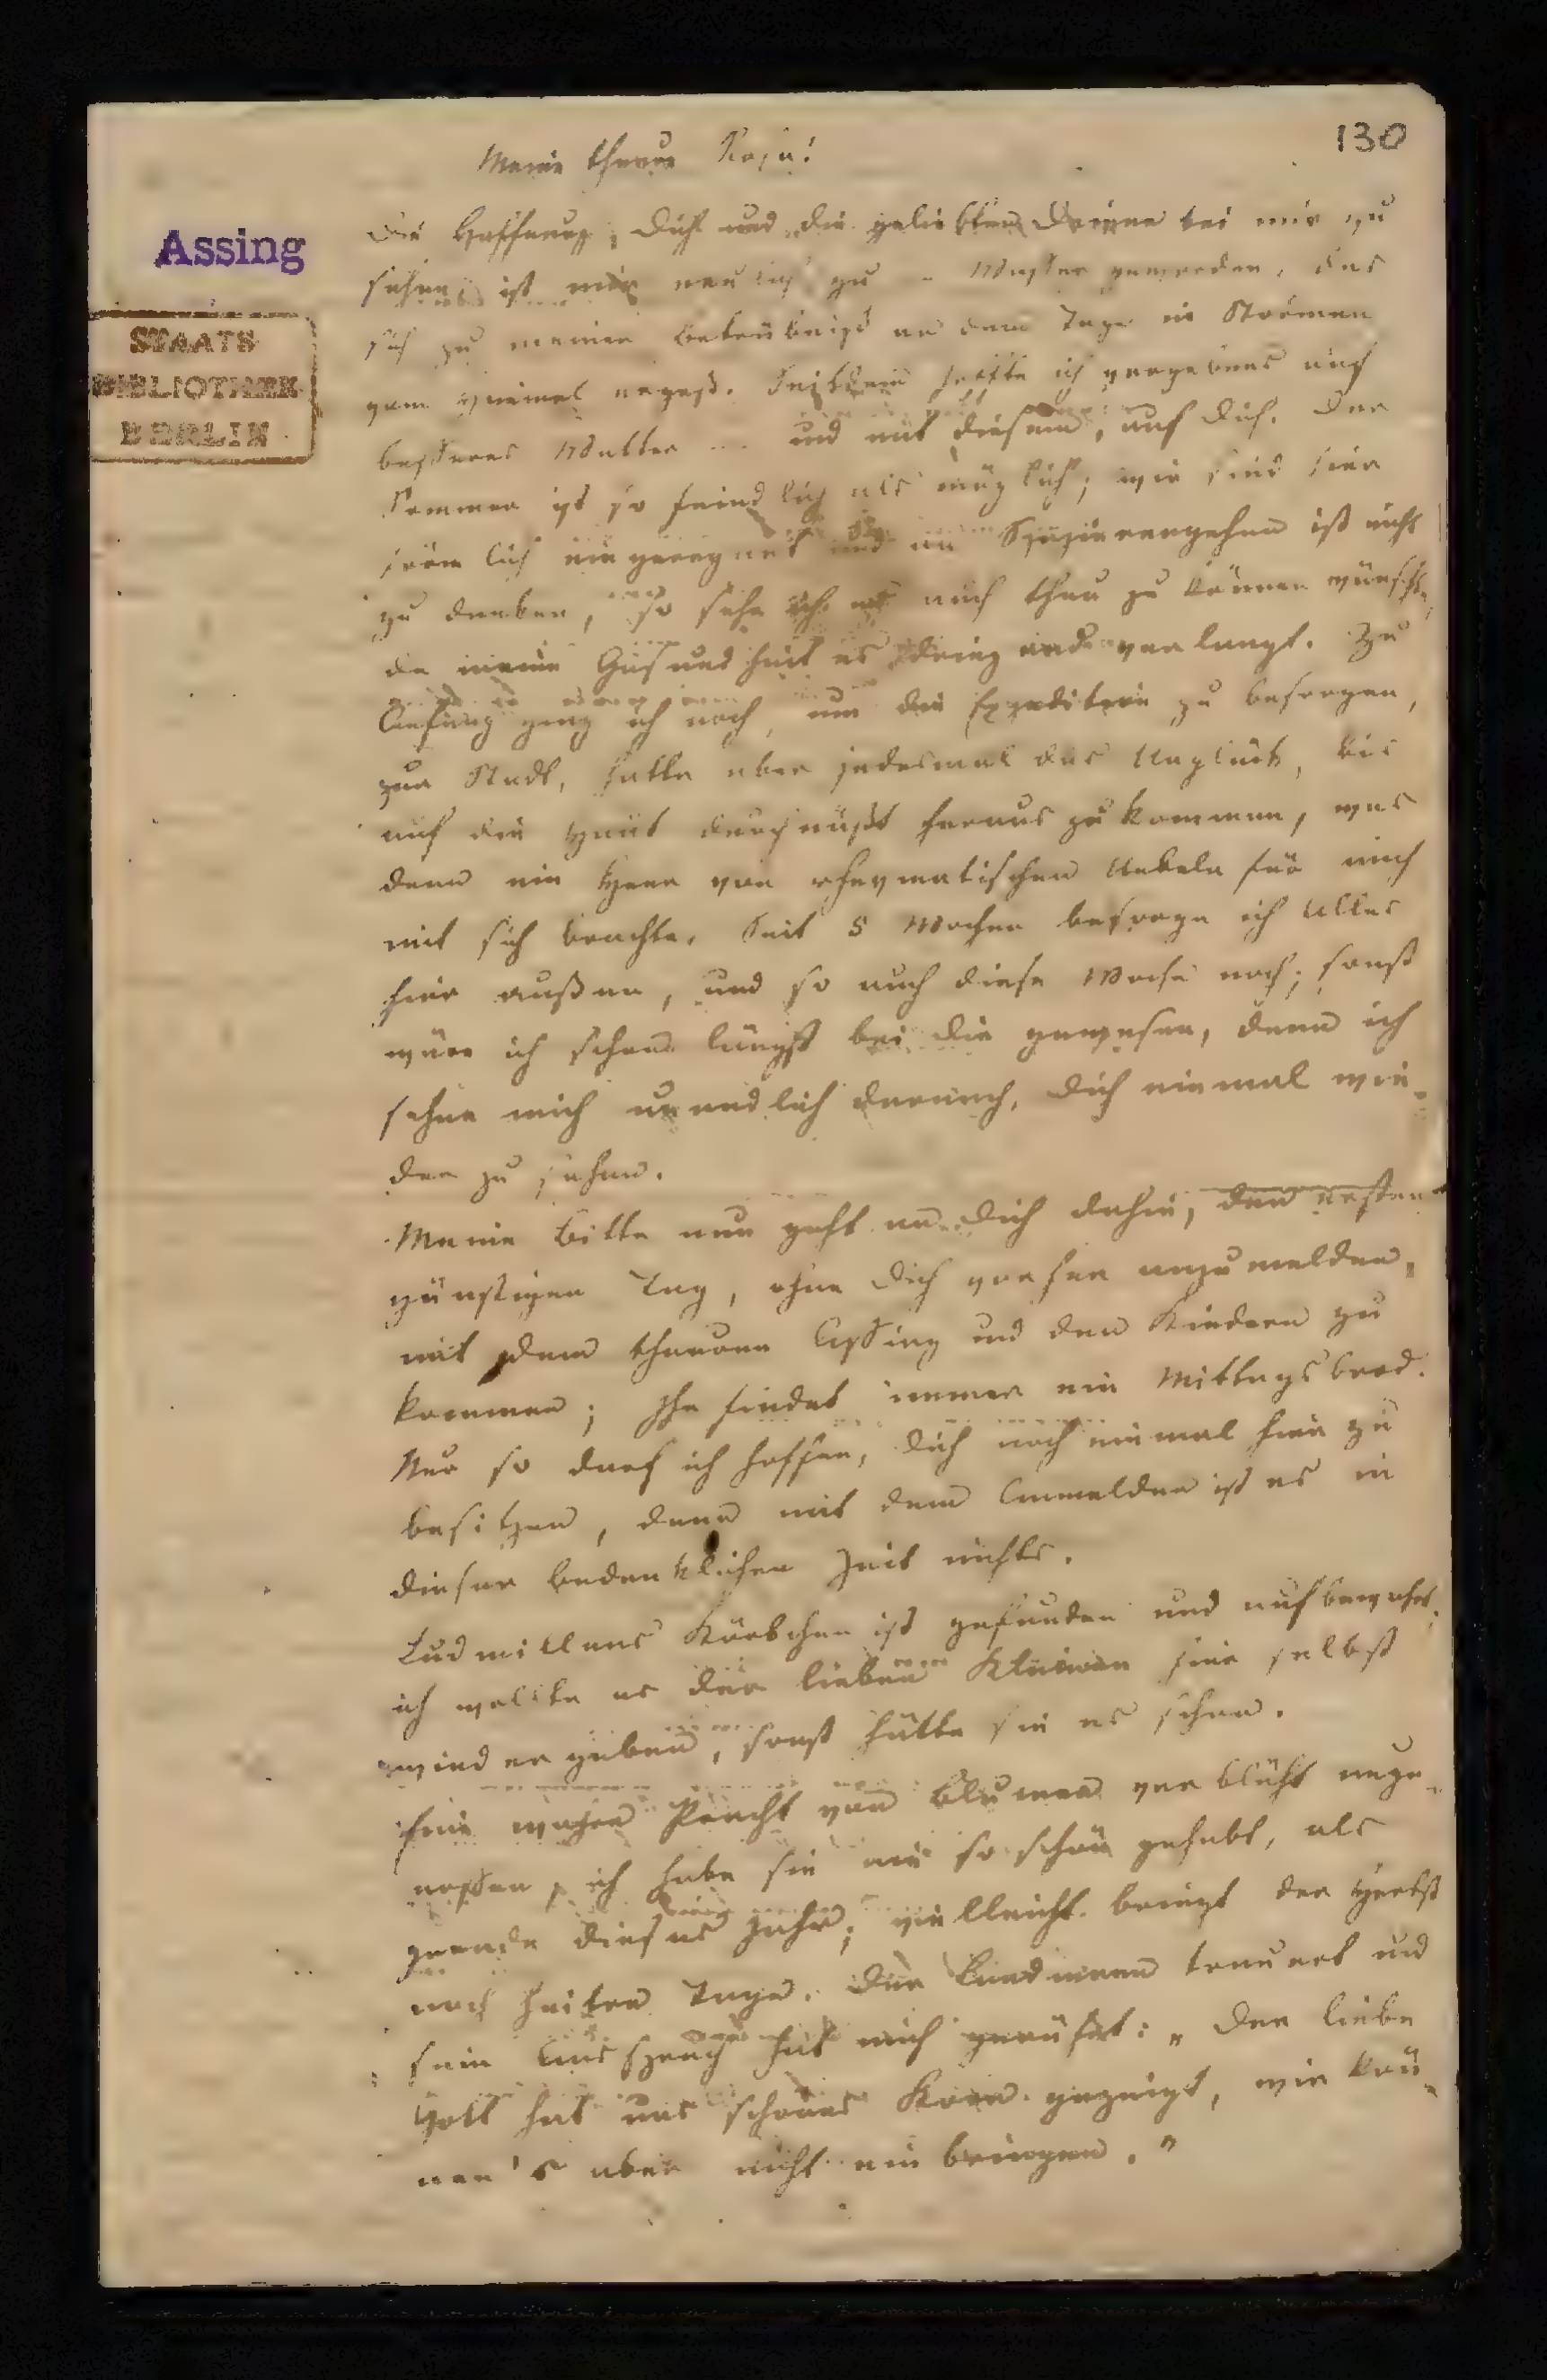 130
Meine theure Rosa!
Die Hoffnung, Dich und die geliebten Deinen bei mir zu
sehen, ist mir neulich zu Wasser geworden, das
sich zu meiner Betrübniß an dem Tage in Strömen
vom Himmel ergoß. Seitdem hoffte ich vergebens auf
besseres Wetter und mit diesem, auf Dich. Der
Sommer ist so feindlich als möglich; wir sind hier
förmlich eingeregnet und an Spazierengehen ist nicht
zu denken, so sehr ich es auch thun zu können wünschte,
da meine Gesundheit es dringend verlangt. Zu
Anfang ging ich noch, um die Expedition zu besorgen,
zur Stadt, hatte aber jedesmal das Unglück, bis
auf die Haut durchnäßt heraus zu kommen, was
denn ein Heer von rheumatischen Uebeln für mich
mit sich brachte. Seit 5 Wochen besorge ich Alles
hier außen, und so auch diese Woche noch; sonst
wäre ich schon längst bei Dir gewesen, denn ich
sehne mich unendlich darnach, Dich einmal wie-
der zu sehen.
Meine Bitte nun geht an Dich dahin, den ersten
günstigen Tag, ohne Dich vorher anzumelden,
mit dem theuren Assing und den Kindern zu
kommen; Ihr findet immer ein Mittagsbrod.
Nur so darf ich hoffen, Dich noch einmal hier zu
besitzen, denn mit dem Anmelden ist es in
dieser bedenklichen Zeit nichts.
Ludmillens Körbchen ist gefunden und aufbewahrt;
ich wollte es der lieben Kleinen hier selbst
wiedergeben, sonst hätte sie es schon.
Eine wahre Pracht von Blumen verblüht unge-
nossen, ich habe sie nie so schön gehabt, als
gerade dieses Jahr; vielleicht bringt der Herbst
noch heitre Tage. Der Landmann trauert und
sein Ausspruch hat mich gerührt: „Der liebe
Gott hat uns schönes Korn gezeigt, wir kön-
nen's aber nicht einbringen."
Assing
STAATS-
BIBLIOTHEK
BERLIN